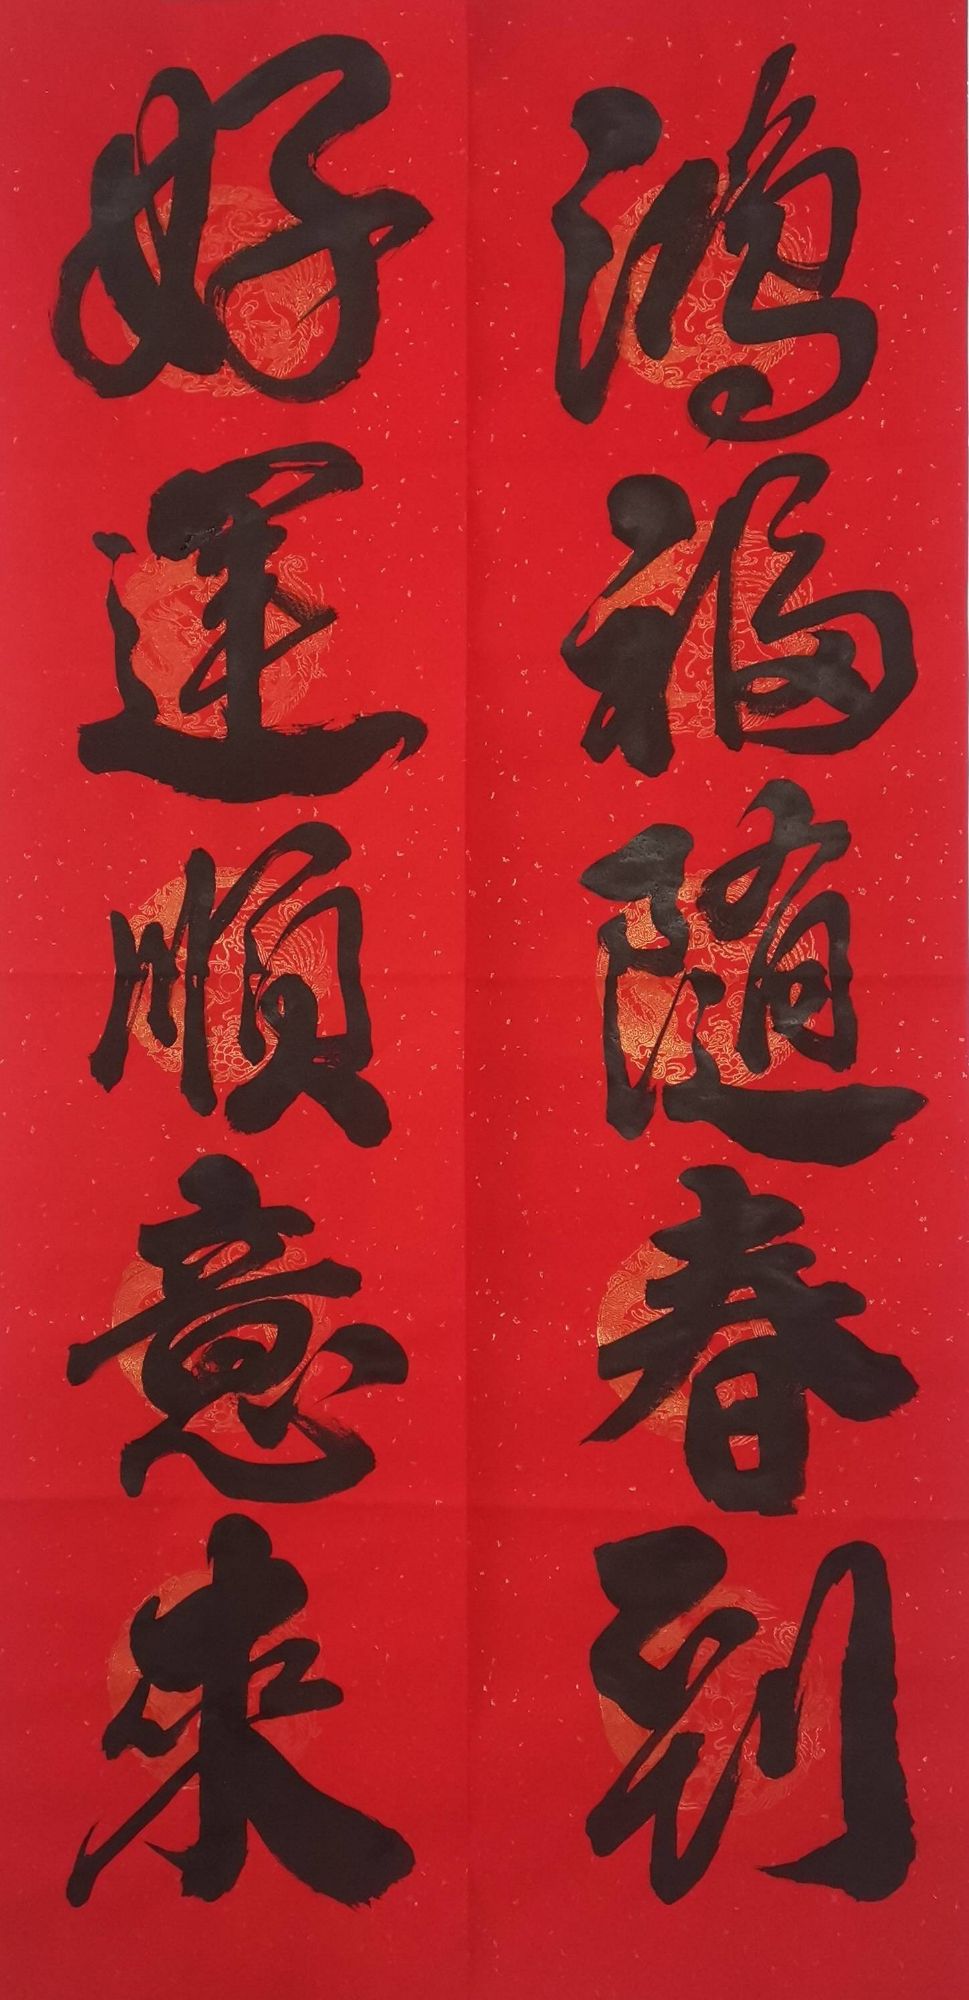 鴻福随春到
好運順意來